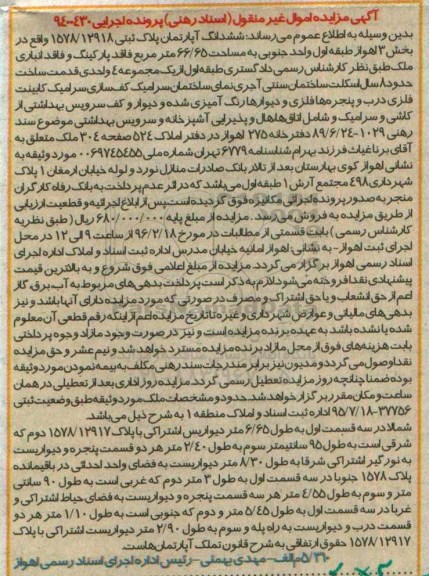 آگهی مزایده اموال غیر منقول (اسناد رهنی) پرونده اجرایی ۹۴۰۰۴۳۰
بدین وسیله به اطلاع عموم می‌رساند: ششدانگ آپارتمان پلاک ثبتی ۱۵۷۸/۱۲۹۱۸ واقع در
بخش ۳ اهواز طبقه اول واحد جنوبی به مساحت ۶۶/۶۵ متر مربع فاقد پارکینگ و فاقد انباری
ملک طبق نظر کارشناس رسمی دادگستری طبقه اول از یک مجموعه ۴ واحدی قدمت ساخت
حدود ۸ سال اسکلت ساختمان سنتی آجری نمای ساختمان سرامیک کف سازی سرامیک کابینت
فلزی درب و پنجره‌ها فلزی و دیوارها رنگ آمیزی شده و دیوار و کف سرویس بهداشتی از
کاشی و سرامیک و شامل اتاق‌ها، هال و پذیرایی آشپزخانه و سرویس بهداشتی موضوع سند
رهنی ۱۰۲۹-۸۹/۶/۲۴ دفترخانه ۲۷۵ اهواز در دفتر املاک ۵۲۴ صفحه ۳۰۴ ملک متعلق به
آقای برناغیاث فرزند بهرام شناسنامه ۶۷۷۹ تهران شماره ملی ۰۰۶۹۷۴۵۴۵۵ مورد وثیقه به
نشانی اهواز کوی بهارستان بعد از تالار بانک صادرات منازل نورد و لوله خیابان ارمغان ۱ پلاک
شهرداری ۴۹۸ مجتمع آرش ۱ طبقه اول می‌باشد که در اثر عدم پرداخت به بانک رفاه کارگران
منجر به صدور پرونده اجرائی مکانیزه فوق گردیده است پس از ابلاغ اجرائیه و قطعیت ارزیابی
از طریق مزایده به فروش می‌رسد. مزایده از مبلغ پایه ۶۸۰/۰۰۰/۰۰۰ ریال (طبق نظریه
کارشناس رسمی) بابت قسمتی از مطالبات در مورخ ۹۶/۲/۱۸ از ساعت ۹ الی ۱۲ در محل
اجرای ثبت اهواز- به نشانی اهواز امانیه خیابان مدرس اداره ثبت اسناد و املاک اداره اجرای
اسناد رسمی اهواز برگزار می گردد. مزایده از مبلغ اعلامی فوق شروع و به بالاترین قیمت
پیشنهادی نقدا فروخته می‌شود لازم به ذکر است پرداخت بدهی‌های مربوط به آب، برق، گاز
اعم از حق انشعاب و یا حق اشتراک و مصرف در صورتی که مورد مزایده دارای آنها باشد و نیز
بدهی‌های مالیاتی و عوارض شهرداری و غیره تا تاریخ مزایده اعم از اینکه رقم قطعی آن معلوم
شده یا نشده باشد به عهده برنده مزایده است و نیز در صورت وجود مازاد وجوه پرداختی
بابت هزینه‌های فوق از محل مازاد برنده مزایده مسترد خواهد شد و نیم عشر و حق مزایده
نقدا وصول می گردد و مدیون نیز برابر مندرجات سند رهنی مکلف به بیمه نمودن مورد وثیقه
بوده ضمنا چنانچه روز مزایده تعطیل رسمی گردد، مزایده روز اداری بعد از تعطیلی در همان
ساعت و مکان مقرر برگزار خواهد شد. حدود و مشخصات ملک مورد وثیقه طبق وضعیت ثبتی
۳۷۷۵۶-۹۵/۷/۱۸ اداره ثبت اسناد و املاک منطقه ۱ به شرح ذیل می‌باشد.
شمالا در سه قسمت اول به طول ۶/۶۵ متر دیواریس اشتراکی با پلاک ۱۵۷۸/۱۲۹۱۷ دوم که
شرقی است به طول ۹۵ سانتیمتر سوم به طول ۲/۴۰ متر هر دو قسمت پنجره و دیواریست
به نورگیر اشتراکی شرقا به طول ۸/۳۰ متر دیواریست به فضای واحد احداثی در باقیمانده
پلاک ۱۵۷۸ جنوبا در سه قسمت اول به طول ۳ متر دوم که غربی است به طول ۹۰ سانتی
متر و سوم به طول ۴/۵۵ متر هر سه قسمت پنجره و دیواریست به فضای حیاط اشتراکی و
غربا در سه قسمت اول به طول ۵/۴۵ متر و دوم که جنوبی است به طول ۱/۱۰ متر هر دو
قسمت درب و دیواریست به راه پله و سوم به طول ۲/۹۰ متر دیواریست اشتراکی با پلاک
۱۵۷۸/۱۲۹۱۷ حقوق ارتفاقی به شرح قانون تملک آپارتمان‌هاست.
۵/۳۶۰ م الف- مهدی بهمئی- رئیس اداره اجرای اسناد رسمی اهواز